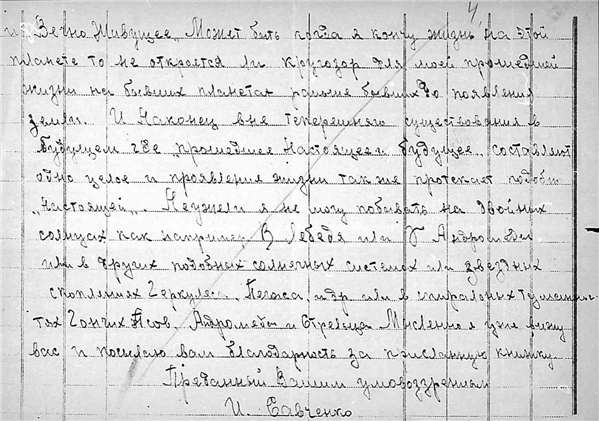 4.
и Вечно Живущее„ Может быть когда я кончу жизнь на этой
планете то не откроется ли кругозор для моей прошедшей
жизни на бывших планетах раньше бывших до появления
земли. И Наконец вне теперешняго существования в
будущем где „прошедшее Настоящее и будущее„ составляют
одно целое и проявление жизни так же протекает подобно
„Настоящей„. Неужели я не могу побывать на двойных
солнцах как например β Лебедя или γ Андромеды
или в других подобных солнечных системах или звездных
скоплениях Геркулеса, Пегаса, и др. или в спиральных туманнос
тях Гончих Псов, Андромеды и Стрельца Мысленно я уже вижу
вас и посылаю вам благодарность за присланную книжку
Преданный Вашим умовоззрениям
И. Савченко